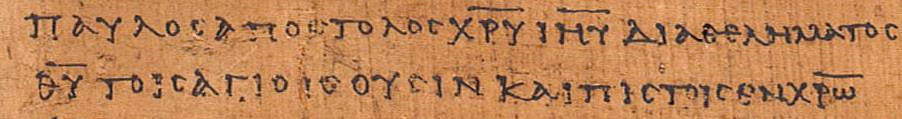 ΠΑΥΛΟϹΑΠΟϹΤΟΛΟϹΧ̅Ρ̅Υ̅ Ι̅Η̅Υ̅ ΔΙΑΘΕΛΗΜΑΤΟϹ
Θ̅Υ̅ ΤΟΙϹΑΓΙΟΙϹΟΥϹΙΝ ΚΑΙΠΙϹΤΟΙϹΕΝΧ̅Ρ̅Ω̅